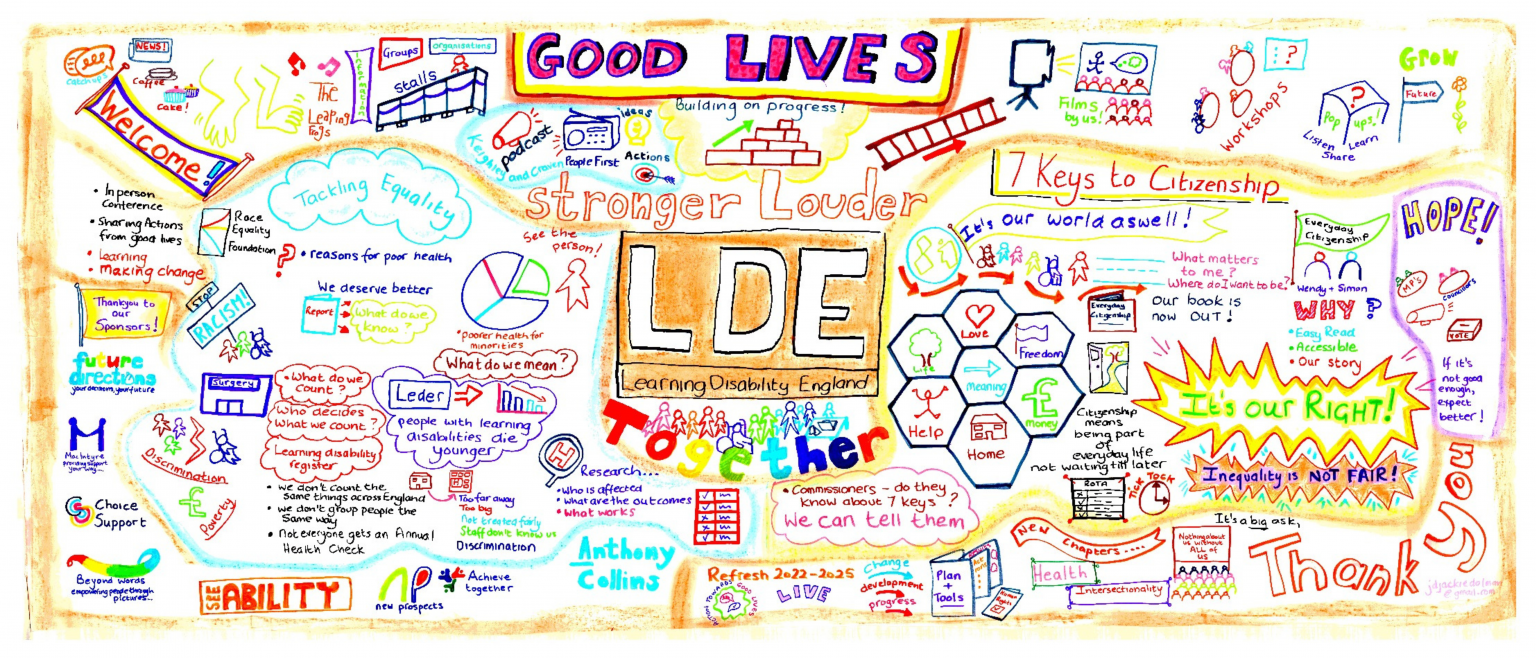 GOOD LIVES
catchups
NEWS!
Coffee
Cake!
Welcome!
The
Leaping
Frogs
Groups
Organisations
stalls
Keighley and Craven
podcast
People First
ideas
Actions
Building on progress!
Films
by us!
?
Workshops
?
Pop
ups!
Listen Learn
Share
Grow
Future
• In person
Conference
• Sharing Actions
from good lives
• Learning
• Making change
Thankyou to
our
Sponsors!
future
directions
your decision, your future
M
MacIntyre
providing support
your way...
Choice
Support
Beyond words
empowering people through
pictures...
SEE
ABILITY
new prospects
Achieve
together
Anthony
Collins
Tackling Equality
Race
Equality
Foundation
?
• reasons for poor health
STOP
RACISM!
We deserve better
Report
What do we
know?
See the
person!
• poorer health for
minorities
What do we mean?
Surgery
• What do we
count?
Who decides
what we count?
Learning disability
register
Leder
people with learning
disabilities die
younger
Discrimination
£
Poverty
• we don't count the
same things across England
• we don't group people the
same way
• Not everyone gets an Annual
Health Check
Too far away
Too big
Not treated fairly
Staff don't know us
Discrimination
H
Research...
• Who is affected
• What are the outcomes
• What works
stronger Louder
LDE
Learning Disability England
Together
7 Keys to Citizenship
It's our world aswell!
What matters
to me?
Where do I want to be?
Everyday
Citizenship
Wendy + Simon
Everyday
Citizenship
Our book is
now OUT!
WHY?
• Easy Read
• Accessible
• Our story
Love
Life
Freedom
Meaning
Help
£
money
Home
Citizenship
means
being part
of
everyday life
not waiting till later
ROTA
TICK TOCK
It's our RIGHT!
Inequality is NOT FAIR!
HOPE!
MP's
Councillors
VOTE
If it's
not good
enough,
expect
better!
• Commissioners - do they
know about 7 keys?
We can tell them
Refresh 2022-2025
ACTION TOWARDS
GOOD LIVES
LIVE
Change
development
progress
Plan
+
Tools
Human
Rights
New Chapters....
Health
Intersectionality
It's a big ask,
Nothing about
us without
ALL of
US
Thank
you